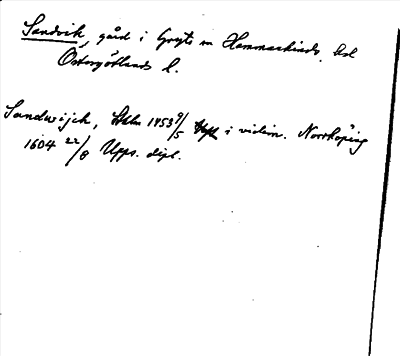 Sandvik, gård i Gryts sn Hammarkinds hd
Östergötlands l.
Sandwijck, Sthlm 1453 9/5 i vidim. Norrköping
1604 22/8 Upps. dipl.